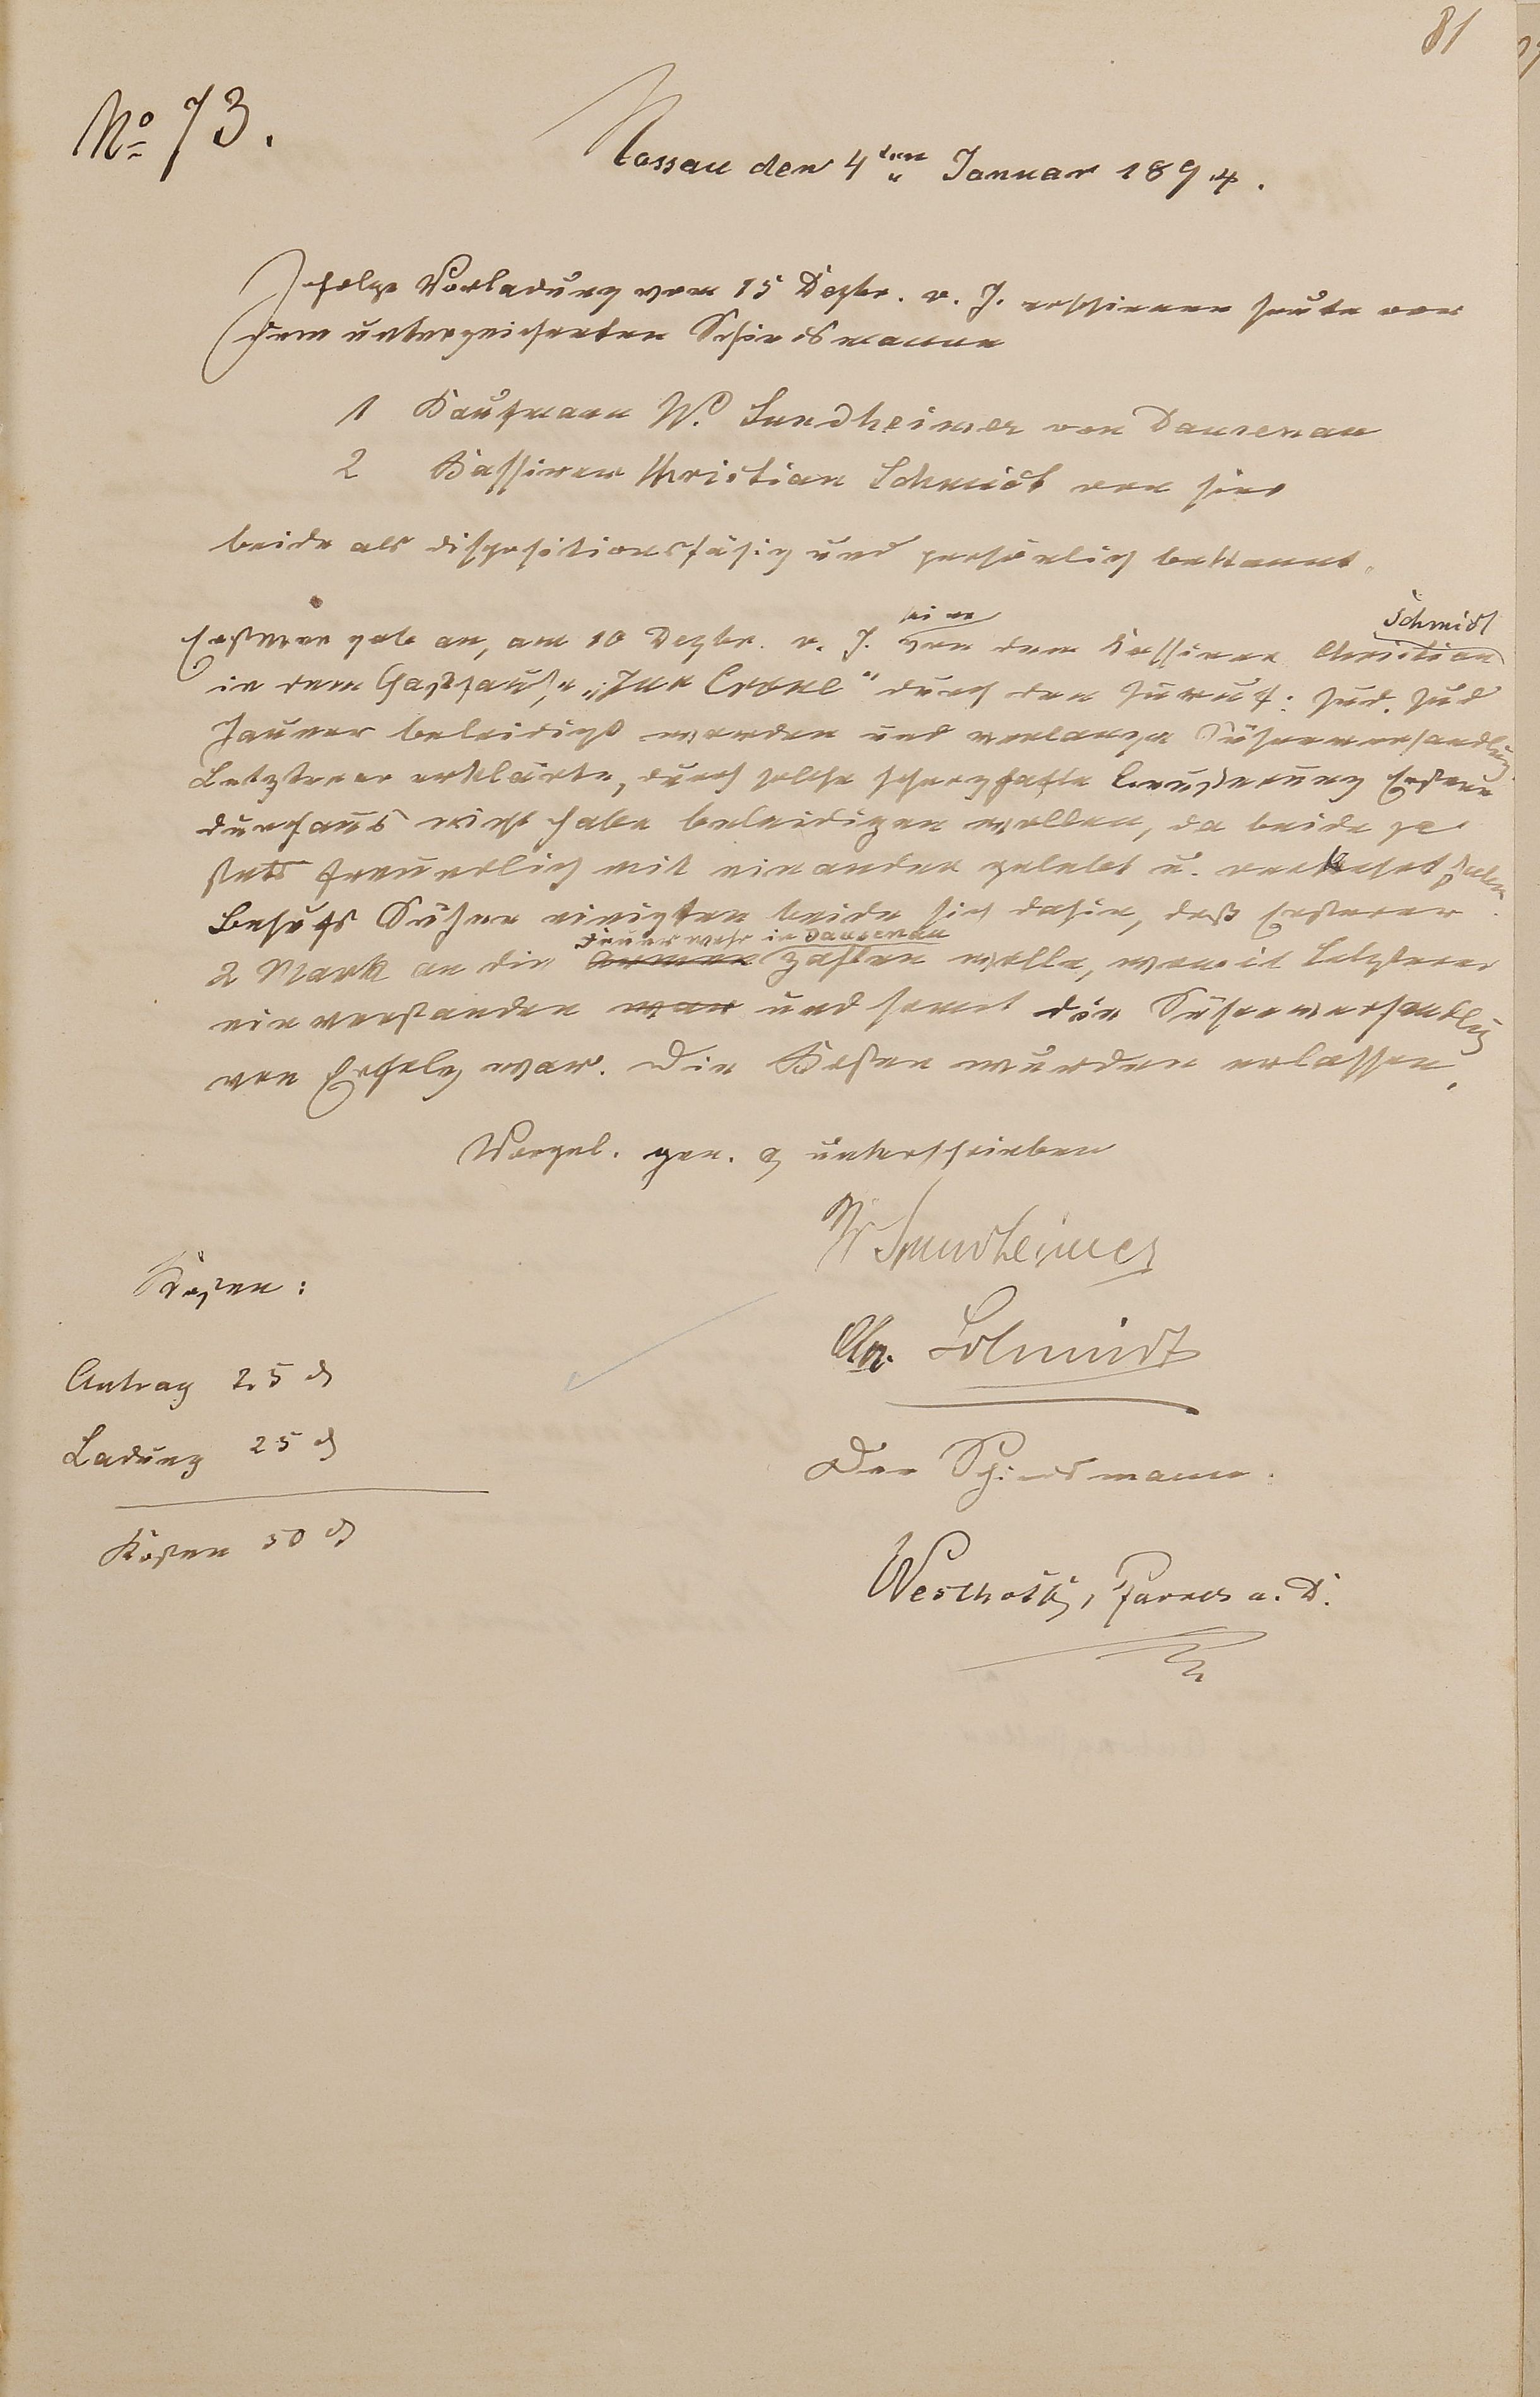 81
No 73.
Nassau den 4ten Januar 1894.
Infolge Vorladung vom 15 Dezbr. v. J. erschienen heute vor
dem unterzeichneten Schiedsmanne
1 Kaufmann W. Sundheimer von Dausenau
2 Kassirer Christian Schmidt von hier
beide als dispositionsfähig und persönlich bekannt.
hier Schmidt
Ersterer gab an, am 10 Dezbr. v. J. von dem Kassirer Christian
in dem Gasthause "Zur Krone" durch den Zuruf: Jud, Jud
Gauner beleidigt worden und verlange Sühneverhandlung
Letzterer erklärte, durch solche scherzhafte Aeußerung Ersteren
durchaus nicht habe beleidigen wollen, da beide ja
stets freundlich mit einander gelebt u. verkehrt haben.
Behufs Sühne einigten beide sich dahin, daß Ersterer
Feuerwehr in Dausenau
2 Mark an die Armen zahlen wolle, womit Letzterer
einverstanden war und somit die Sühneverhandlg
von Erfolg war. Die Kosten wurden erlassen.
Vorgel. gen. & unterschrieben
W Sundheimer
Chr. Schmidt
Kosten:
Antrag 25 ₰
Ladung 25 ₰
Kosten 50 ₰
Der Schiedsmann.
Pfarrer a. D.